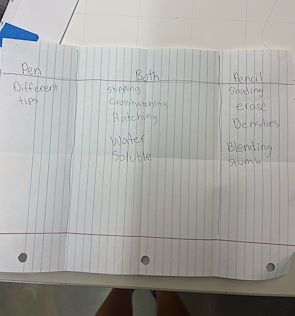 Pen
Different
tips
Both
Stippling
Crosshatching
Hatching
Water
Soluble
Pencil
Shading
erase
Densities
Blending
stump